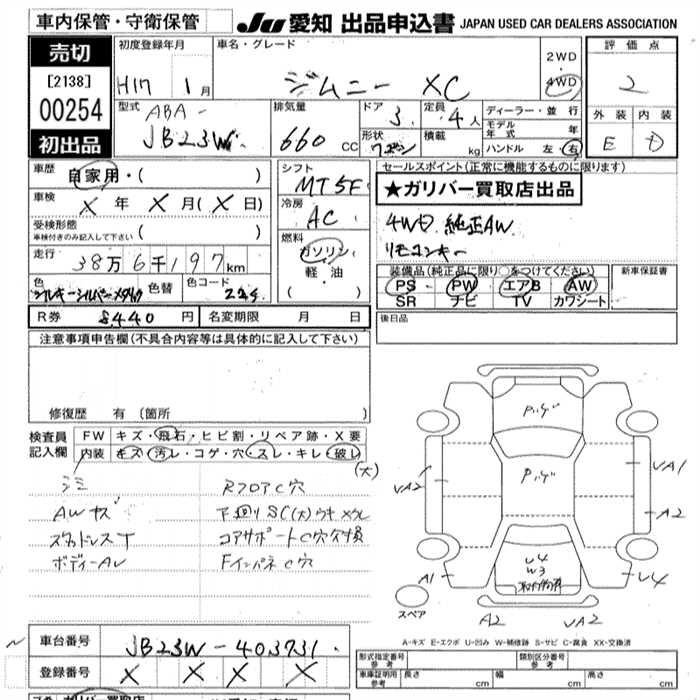 車内保管・守衛保管
JU 愛知 出品申込書 JAPAN USED CAR DEALERS ASSOCIATION
売切
[2138]
00254
初出品
初度登録年月
H17 1月
車名・グレード
ジムニー XC
2WD
・
4WD
評価点
2
外装 内装
E D
型式
ABA-
JB23W
排気量
660 cc
ドア
3
定員
4人
形状
ワゴン
積載
kg
ディーラー・並行
モデル年式 年
ハンドル 左・右
車歴
自家用・( )
車検
X 年 X 月(X 日)
受検形態
車検付きのみ記入して下さい ( )
走行
38万6千197km
色
シルキーシルバーメタリック
色替
色コード
Z2S
シフト
MT5F
冷房
AC
燃料
ガソリン
・
軽・油
( )
セールスポイント(正常に機能するものに限ります)
★ガリバー買取店出品
4WD. 純正AW
リモコンキー
装備品(純正品に限り○をつけてください)
PS PW エアB AW
SR ナビ TV カワシート
新車保証書
後日品
R券 8440 円
名変期限 月 日
注意事項申告欄(不具合内容等は具体的に記入して下さい)
修復歴 有(箇所 )
検査員
記入欄
FW キズ・飛石・ヒビ割・リペア跡・X要
内装 キズ・汚レ・コゲ・穴・スレ・キレ・破レ
(大)
シミ
AWキズ
スタッドレスT
ボディーAU
RフロアC穴
下回りSC(大)ウキメクレ
コアサポートC穴欠損
FインパネC穴
ハゲ
ハゲ
VA2
VA1
A2
U4
W3
A1
U4
A2
VA2
スペア
A-キズ E-エクボ U-凹み W-補修跡 S-サビ C-腐食 XX-交換済
車台番号
JB23W-403731
登録番号
X X X X
形式指定番号
参考
類別区分番号
参考
車庫証明用
参考
長さ cm
幅 cm
高さ cm